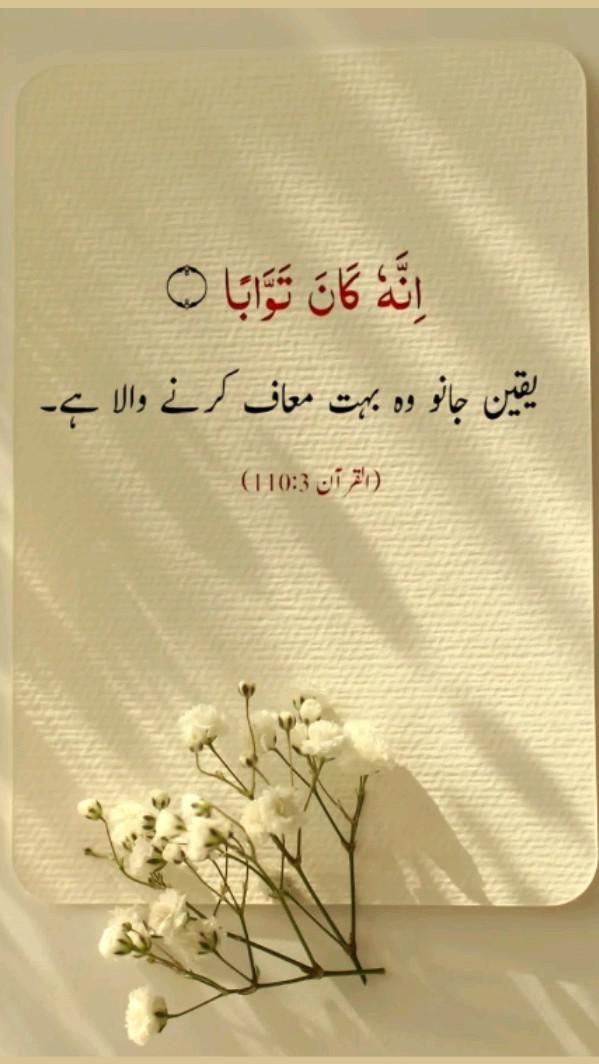 اِنَّهٗ كَانَ تَوَّابًا ۝
یقین جانو وہ بہت معاف کرنے والا ہے۔
(القرآن 110:3)